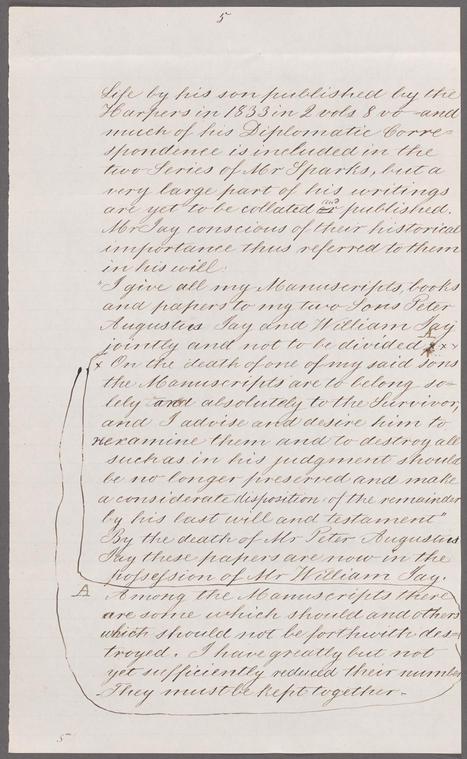 5
Life by his son published by the
Harpers in 1833 in 2 vols 8 vo and
much of his Diplomatic Corre=
spondence is included in the
two Series of Mr Sparks, but a
very large part of his writings
are yet to be collated and published.
Mr Jay conscious of their historical
importance thus referred to them
in his will:
"I give all my Manuscripts, books
and papers to my two Sons Peter
Augustus Jay and William Jay
jointly and not to be divided A x x x
x On the death of one of my said sons
the Manuscripts are to belong so-
lely and absolutely to the Survivor,
and I advise and desire him to
reexamine them and to destroy all
such as in his judgment should
be no longer preserved and make
a considerate disposition of the remainder
by his last will and testament"
By the death of Mr Peter Augustus
Jay these papers are now in the
possession of Mr William Jay.
A Among the Manuscripts there
are some which should and others
which should not be forthwith des=
troyed. I have greatly but not
yet sufficiently reduced their number
They must be kept together.
5